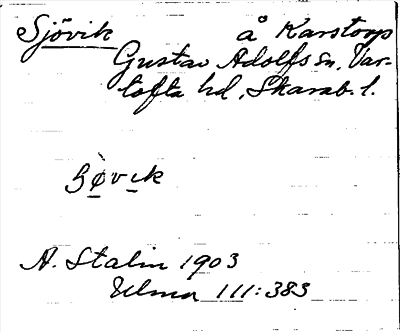 Sjövik å Karstorp
Gustav Adolfs sn, Var-
tofta hd, Skarab. l.
A. Stalin 1903
Ulma 111:383